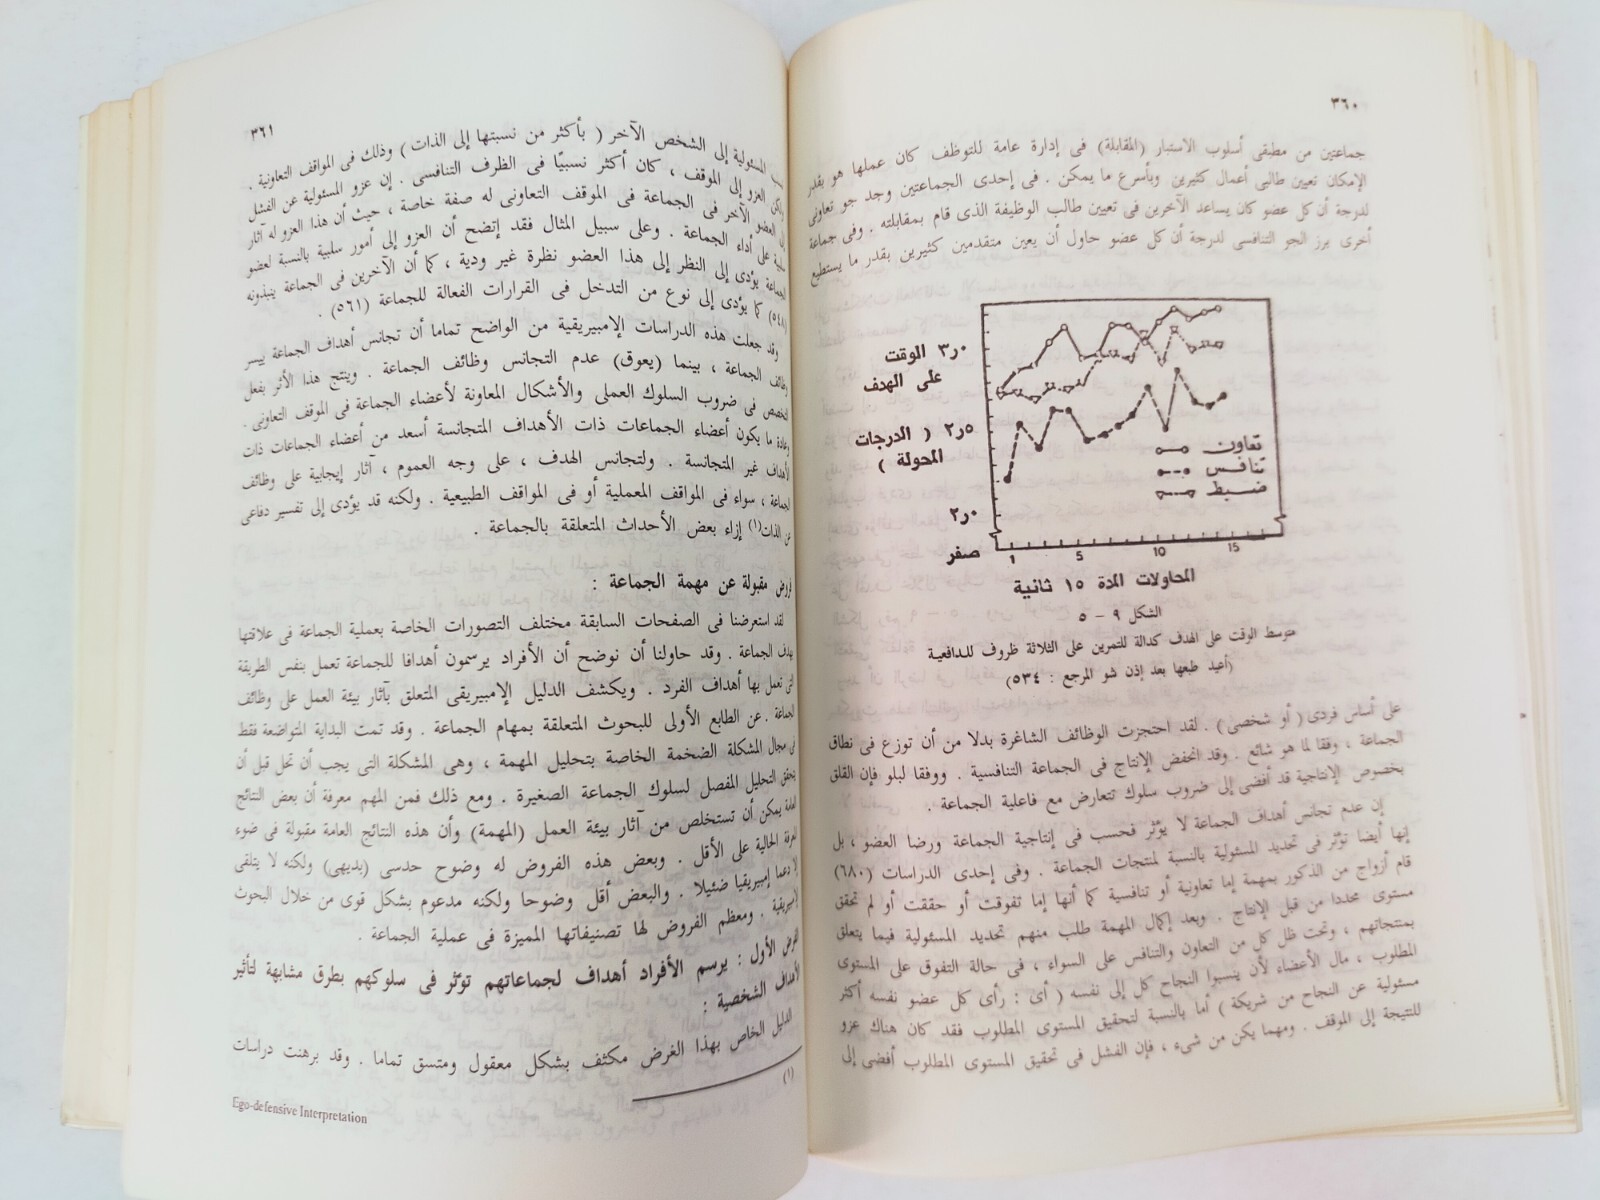 ٣٦٠
جماعتين من مطبقى أسلوب الاستبار (المقابلة) فى إدارة عامة للتوظف كان عملها هو بقدر
الإمكان تعيين طالبى أعمال كثيرين وبأسرع ما يمكن . فى إحدى الجماعتين وجد جو تعاونى
لدرجة أن كل عضو كان يساعد الآخرين فى تعيين طالب الوظيفة الذى قام بمقابلته . وفى جماعة
أخرى برز الجو التنافسى لدرجة أن كل عضو حاول أن يعين متقدمين كثيرين بقدر ما يستطيع
٣٫٠ الوقت
على الهدف
٢٫٥ ( الدرجات
المحولة )
٢٫٠
صفر
تعاون
تنافس
ضبط
1 5 10 15
المحاولات المدة ١٥ ثانية
الشكل ٩ – ٥
متوسط الوقت على الهدف كدالة للتمرين على الثلاثة ظروف للدافعية
(أعيد طبعها بعد إذن شو المرجع : ٥٣٤)
على أساس فردى ( أو شخصى ) . لقد احتجزت الوظائف الشاغرة بدلا من أن توزع فى نطاق
الجماعة ، وفقا لما هو شائع . وقد انخفض الإنتاج فى الجماعة التنافسية . ووفقا لبلو فإن القلق
بخصوص الإنتاجية قد أفضى إلى ضروب سلوك تتعارض مع فاعلية الجماعة .
إن عدم تجانس أهداف الجماعة لا يؤثر فحسب فى إنتاجية الجماعة ورضا العضو ، بل
إنها أيضا تؤثر فى تحديد المسئولية بالنسبة لمنتجات الجماعة . وفى إحدى الدراسات (٦٨٠)
قام أزواج من الذكور بمهمة إما تعاونية أو تنافسية كما أنها إما تفوقت أو حققت أو لم تحقق
مستوى محددا من قبل الإنتاج . وبعد إكمال المهمة طلب منهم تحديد المسئولية فيما يتعلق
بمنتجاتهم ، وتحت ظل كل من التعاون والتنافس على السواء ، فى حالة التفوق على المستوى
المطلوب ، مال الأعضاء لأن ينسبوا النجاح كل إلى نفسه ( أى : رأى كل عضو نفسه أكثر
مسئولية عن النجاح من شريكة ) أما بالنسبة لتحقيق المستوى المطلوب فقد كان هناك عزو
للنتيجة إلى الموقف . ومهما يكن من شىء ، فإن الفشل فى تحقيق المستوى المطلوب أفضى إلى
٣٦١
المسئولية إلى الشخص الآخر ( بأكثر من نسبتها إلى الذات ) وذلك فى المواقف التعاونية .
ولكن العزو إلى الموقف ، كان أكثر نسبيًا فى الظرف التنافسى . إن عزو المسئولية عن الفشل
إلى العضو الآخر فى الجماعة فى الموقف التعاونى له صفة خاصة ، حيث أن هذا العزو له آثار
سلبية على أداء الجماعة . وعلى سبيل المثال فقد إتضح أن العزو إلى أمور سلبية بالنسبة لعضو
الجماعة يؤدى إلى النظر إلى هذا العضو نظرة غير ودية ، كما أن الآخرين فى الجماعة ينبذونه
(٥٤٨) كما يؤدى إلى نوع من التدخل فى القرارات الفعالة للجماعة (٥٦١) .
وقد جعلت هذه الدراسات الإمبيريقية من الواضح تماما أن تجانس أهداف الجماعة ييسر
وظائف الجماعة ، بينما (يعوق) عدم التجانس وظائف الجماعة . وينتج هذا الأثر بفعل
التخصص فى ضروب السلوك العملى والأشكال المعاونة لأعضاء الجماعة فى الموقف التعاونى .
وعادة ما يكون أعضاء الجماعات ذات الأهداف المتجانسة أسعد من أعضاء الجماعات ذات
الأهداف غير المتجانسة . ولتجانس الهدف ، على وجه العموم ، آثار إيجابية على وظائف
الجماعة ، سواء فى المواقف المعملية أو فى المواقف الطبيعية . ولكنه قد يؤدى إلى تفسير دفاعى
عن الذات(١) إزاء بعض الأحداث المتعلقة بالجماعة .
فروض مقبولة عن مهمة الجماعة :
لقد استعرضنا فى الصفحات السابقة مختلف التصورات الخاصة بعملية الجماعة فى علاقتها
بهدف الجماعة . وقد حاولنا أن نوضح أن الأفراد يرسمون أهدافا للجماعة تعمل بنفس الطريقة
التى تعمل بها أهداف الفرد . ويكشف الدليل الإمبيريقى المتعلق بآثار بيئة العمل على وظائف
الجماعة . عن الطابع الأولى للبحوث المتعلقة بمهام الجماعة . وقد تمت البداية المتواضعة فقط
فى مجال المشكلة الضخمة الخاصة بتحليل المهمة ، وهى المشكلة التى يجب أن تحل قبل أن
يتحقق التحليل المفصل لسلوك الجماعة الصغيرة . ومع ذلك فمن المهم معرفة أن بعض النتائج
العامة يمكن أن تستخلص من آثار بيئة العمل (المهمة) وأن هذه النتائج العامة مقبولة فى ضوء
المعرفة الحالية على الأقل . وبعض هذه الفروض له وضوح حدسى (بديهى) ولكنه لا يتلقى
إلا دعما إمبيريقيا ضئيلا . والبعض أقل وضوحا ولكنه مدعوم بشكل قوى من خلال البحوث
الإمبيريقية . ومعظم الفروض لها تصنيفاتها المميزة فى عملية الجماعة .
الفرض الأول : يرسم الأفراد أهداف لجماعاتهم تؤثر فى سلوكهم بطرق مشابهة لتأثير
الأهداف الشخصية :
الدليل الخاص بهذا الغرض مكثف بشكل معقول ومتسق تماما . وقد برهنت دراسات
(١)
Ego-defensive Interpretation